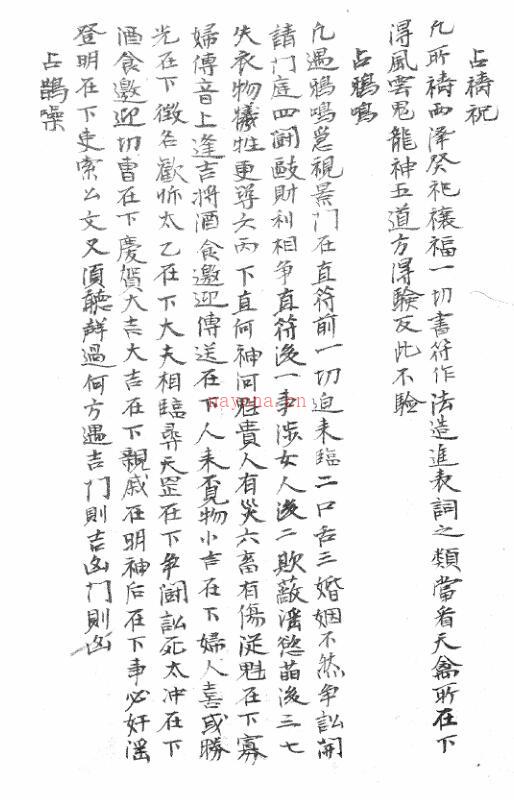 占禱祝
凡所禱雨澤癸祀禳福一切書符作法造進表詞之類當看天禽所在下
得風雲鬼龍神五道方得驗反此不驗
占鴉鳴
凡遇鴉鳴急視景门在直符前一切迫未臨二口舌三婚姻不然争訟開
請门庭四闘敺財利相争直符後一事涉女人後二欺蔽滛慾萠後三七
失衣物犧牲更尋六丙下直何神河魁貴人有災六畜有傷従魁在下寡
婦傳音上逢吉将酒食邀迎傳送在下人来覓物小吉在下婦人喜或勝
光在下徵名歡忻太乙在下大夫相臨尋天罡在下争闘訟死太冲在下
酒食邀迎切曹在下慶賀大吉大吉在下親戚在明神后在下事必奸滛
登明在下吏索公文又須聽群過何方遇吉门則吉凶门則凶
占鵲噪
nayona.cn